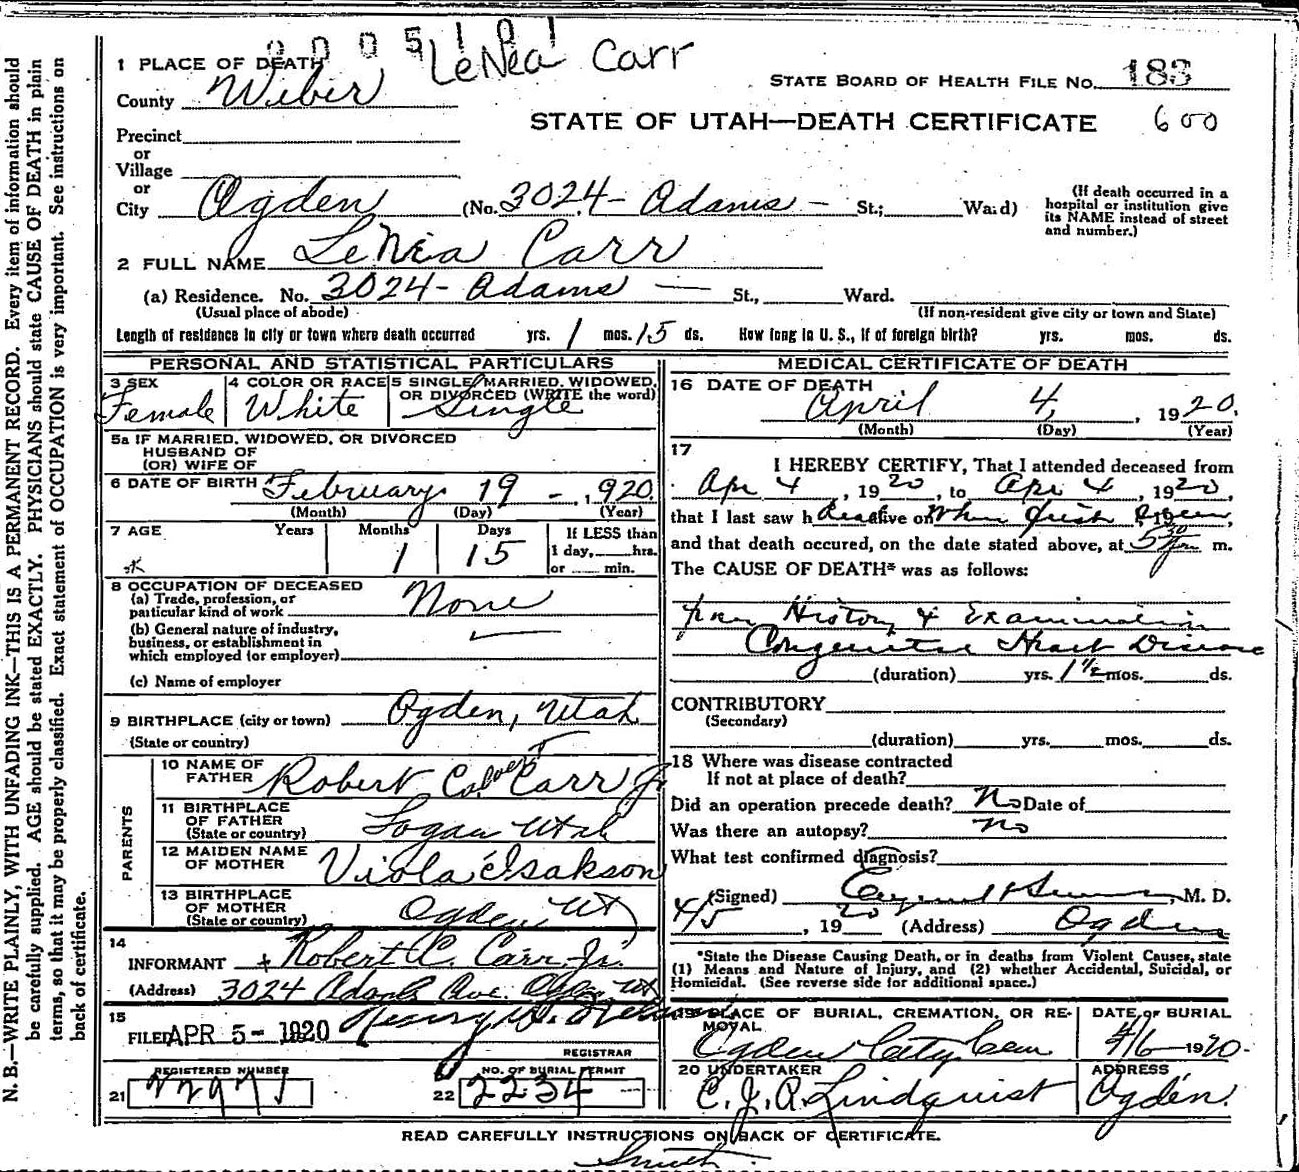 0 0 0 5 1 0 1
LeNea Carr
1 PLACE OF DEATH
STATE BOARD OF HEALTH FILE No. 183
County Weber
STATE OF UTAH—DEATH CERTIFICATE 600
Precinct
or
Village
or
City Ogden (No. 3024 - Adams - St.; Ward)
(If death occurred in a hospital or institution give its NAME instead of street and number.)
2 FULL NAME LeNea Carr
(a) Residence. No. 3024 - Adams — St., Ward.
(Usual place of abode) (If non-resident give city or town and State)
Length of residence in city or town where death occurred yrs. 1 mos. 15 ds. How long in U. S., if of foreign birth? yrs. mos. ds.
PERSONAL AND STATISTICAL PARTICULARS
3 SEX Female
4 COLOR OR RACE White
5 SINGLE, MARRIED, WIDOWED, OR DIVORCED (WRITE the word) Single
5a IF MARRIED, WIDOWED, OR DIVORCED
HUSBAND OF
(OR) WIFE OF
6 DATE OF BIRTH February 19 - , 1920
(Month) (Day) (Year)
7 AGE Years Months 1 Days 15
If LESS than
1 day, hrs.
or min.
8 OCCUPATION OF DECEASED
(a) Trade, profession, or
particular kind of work None
(b) General nature of industry,
business, or establishment in
which employed (or employer)
(c) Name of employer
9 BIRTHPLACE (city or town) Ogden, Utah
(State or country)
PARENTS
10 NAME OF FATHER Robert Calvert Carr Jr
11 BIRTHPLACE OF FATHER Logan Utah
(State or country)
12 MAIDEN NAME OF MOTHER Viola Isakson
13 BIRTHPLACE OF MOTHER Ogden Ut
(State or country)
14
INFORMANT Robert C. Carr Jr.
(Address) 3024 Adams Ave. Ogden Ut
15
FILED APR 5 - 1920 Henry
REGISTRAR
REGISTERED NUMBER
21
NO. OF BURIAL PERMIT
22 2234
MEDICAL CERTIFICATE OF DEATH
16 DATE OF DEATH
April 4, , 1920.
(Month) (Day) (Year)
17
I HEREBY CERTIFY, That I attended deceased from
Apr 4 , 1920, to Apr 4 , 1920,
that I last saw h Dead alive on When first seen, 19
and that death occured, on the date stated above, at 5 30 m.
The CAUSE OF DEATH* was as follows:
from History & Examination
Congenital Heart Disease
(duration) yrs. 1 1/2 mos. ds.
CONTRIBUTORY
(Secondary)
(duration) yrs. mos. ds.
18 Where was disease contracted
If not at place of death?
Did an operation precede death? No Date of
Was there an autopsy? no
What test confirmed diagnosis?
(Signed) M. D.
4/5 , 1920 (Address) Ogden
*State the Disease Causing Death, or in deaths from Violent Causes, state
(1) Means and Nature of Injury, and (2) whether Accidental, Suicidal, or
Homicidal. (See reverse side for additional space.)
19 PLACE OF BURIAL, CREMATION, OR RE-
MOVAL
Ogden City Cem
DATE OF BURIAL
4/6 1920.
20 UNDERTAKER
C. J. A. Lindquist
ADDRESS
Ogden.
READ CAREFULLY INSTRUCTIONS ON BACK OF CERTIFICATE.
Smith
N. B.—WRITE PLAINLY, WITH UNFADING INK—THIS IS A PERMANENT RECORD. Every item of information should
be carefully supplied. AGE should be stated EXACTLY. PHYSICIANS should state CAUSE OF DEATH in plain
terms, so that it may be properly classified. Exact statement of OCCUPATION is very important. See instructions on
back of certificate.